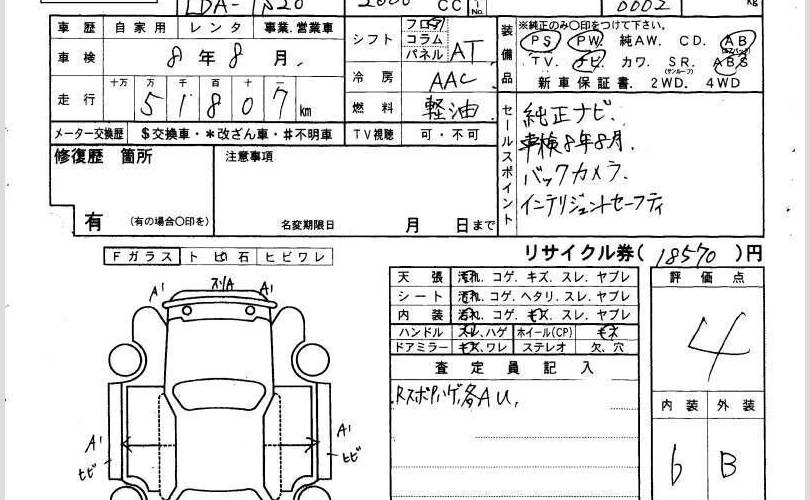 LDA-
CC
No
0002
kg
車歴 自家用 レンタ 事業.営業車
車検 8年8月
走行 十万 万 千 百 十 一
51807 km
メーター交換歴 $交換車・*改ざん車・#不明車
シフト フロア コラム パネル AT
冷房 AAC
燃料 軽油
TV視聴 可・不可
装備品 ※純正のみ〇印をつけて下さい。
PS. PW. 純AW. CD. AB (エアバッグ)
TV. ナビ. カワ. SR. (サンルーフ) ABS
新車保証書. 2WD. 4WD
セールスポイント
純正ナビ.
車検8年8月.
バックカメラ.
インテリジェントセーフティ
修復歴 箇所
有 (有の場合〇印を)
注意事項
名変期限日 月 日まで
リサイクル券( 18570 )円
Fガラス トビ石 ヒビワレ
A' スリA A'
A' ヒビ
A' ヒビ
天張 汚れ. コゲ. キズ. スレ. ヤブレ
シート 汚れ. コゲ. ヘタリ. スレ. ヤブレ
内装 汚れ. コゲ. キズ. スレ. ヤブレ
ハンドル スレ.ハゲ ホイール(CP) キズ
ドアミラー キズ.ワレ ステレオ 欠.穴
査定員記入
Rスポハゲ.各AU,
評価点
4
内装 外装
6 B